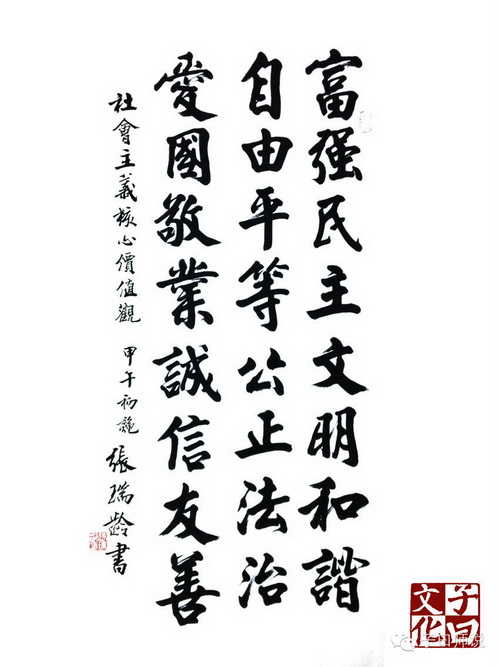 富强民主文明和諧
自由平等公正法治
愛國敬業誠信友善
社會主義核心價值觀 甲午初龍 張瑞齡書
子曰
文化
子曰师说